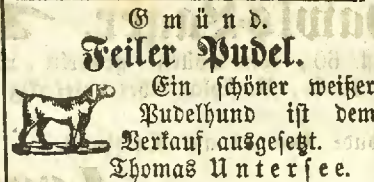 Gmünd.
Feiler Pudel.
Ein schöner weißer
Pudelhund ist dem
Verkauf ausgesetzt.
Thomas Untersee.